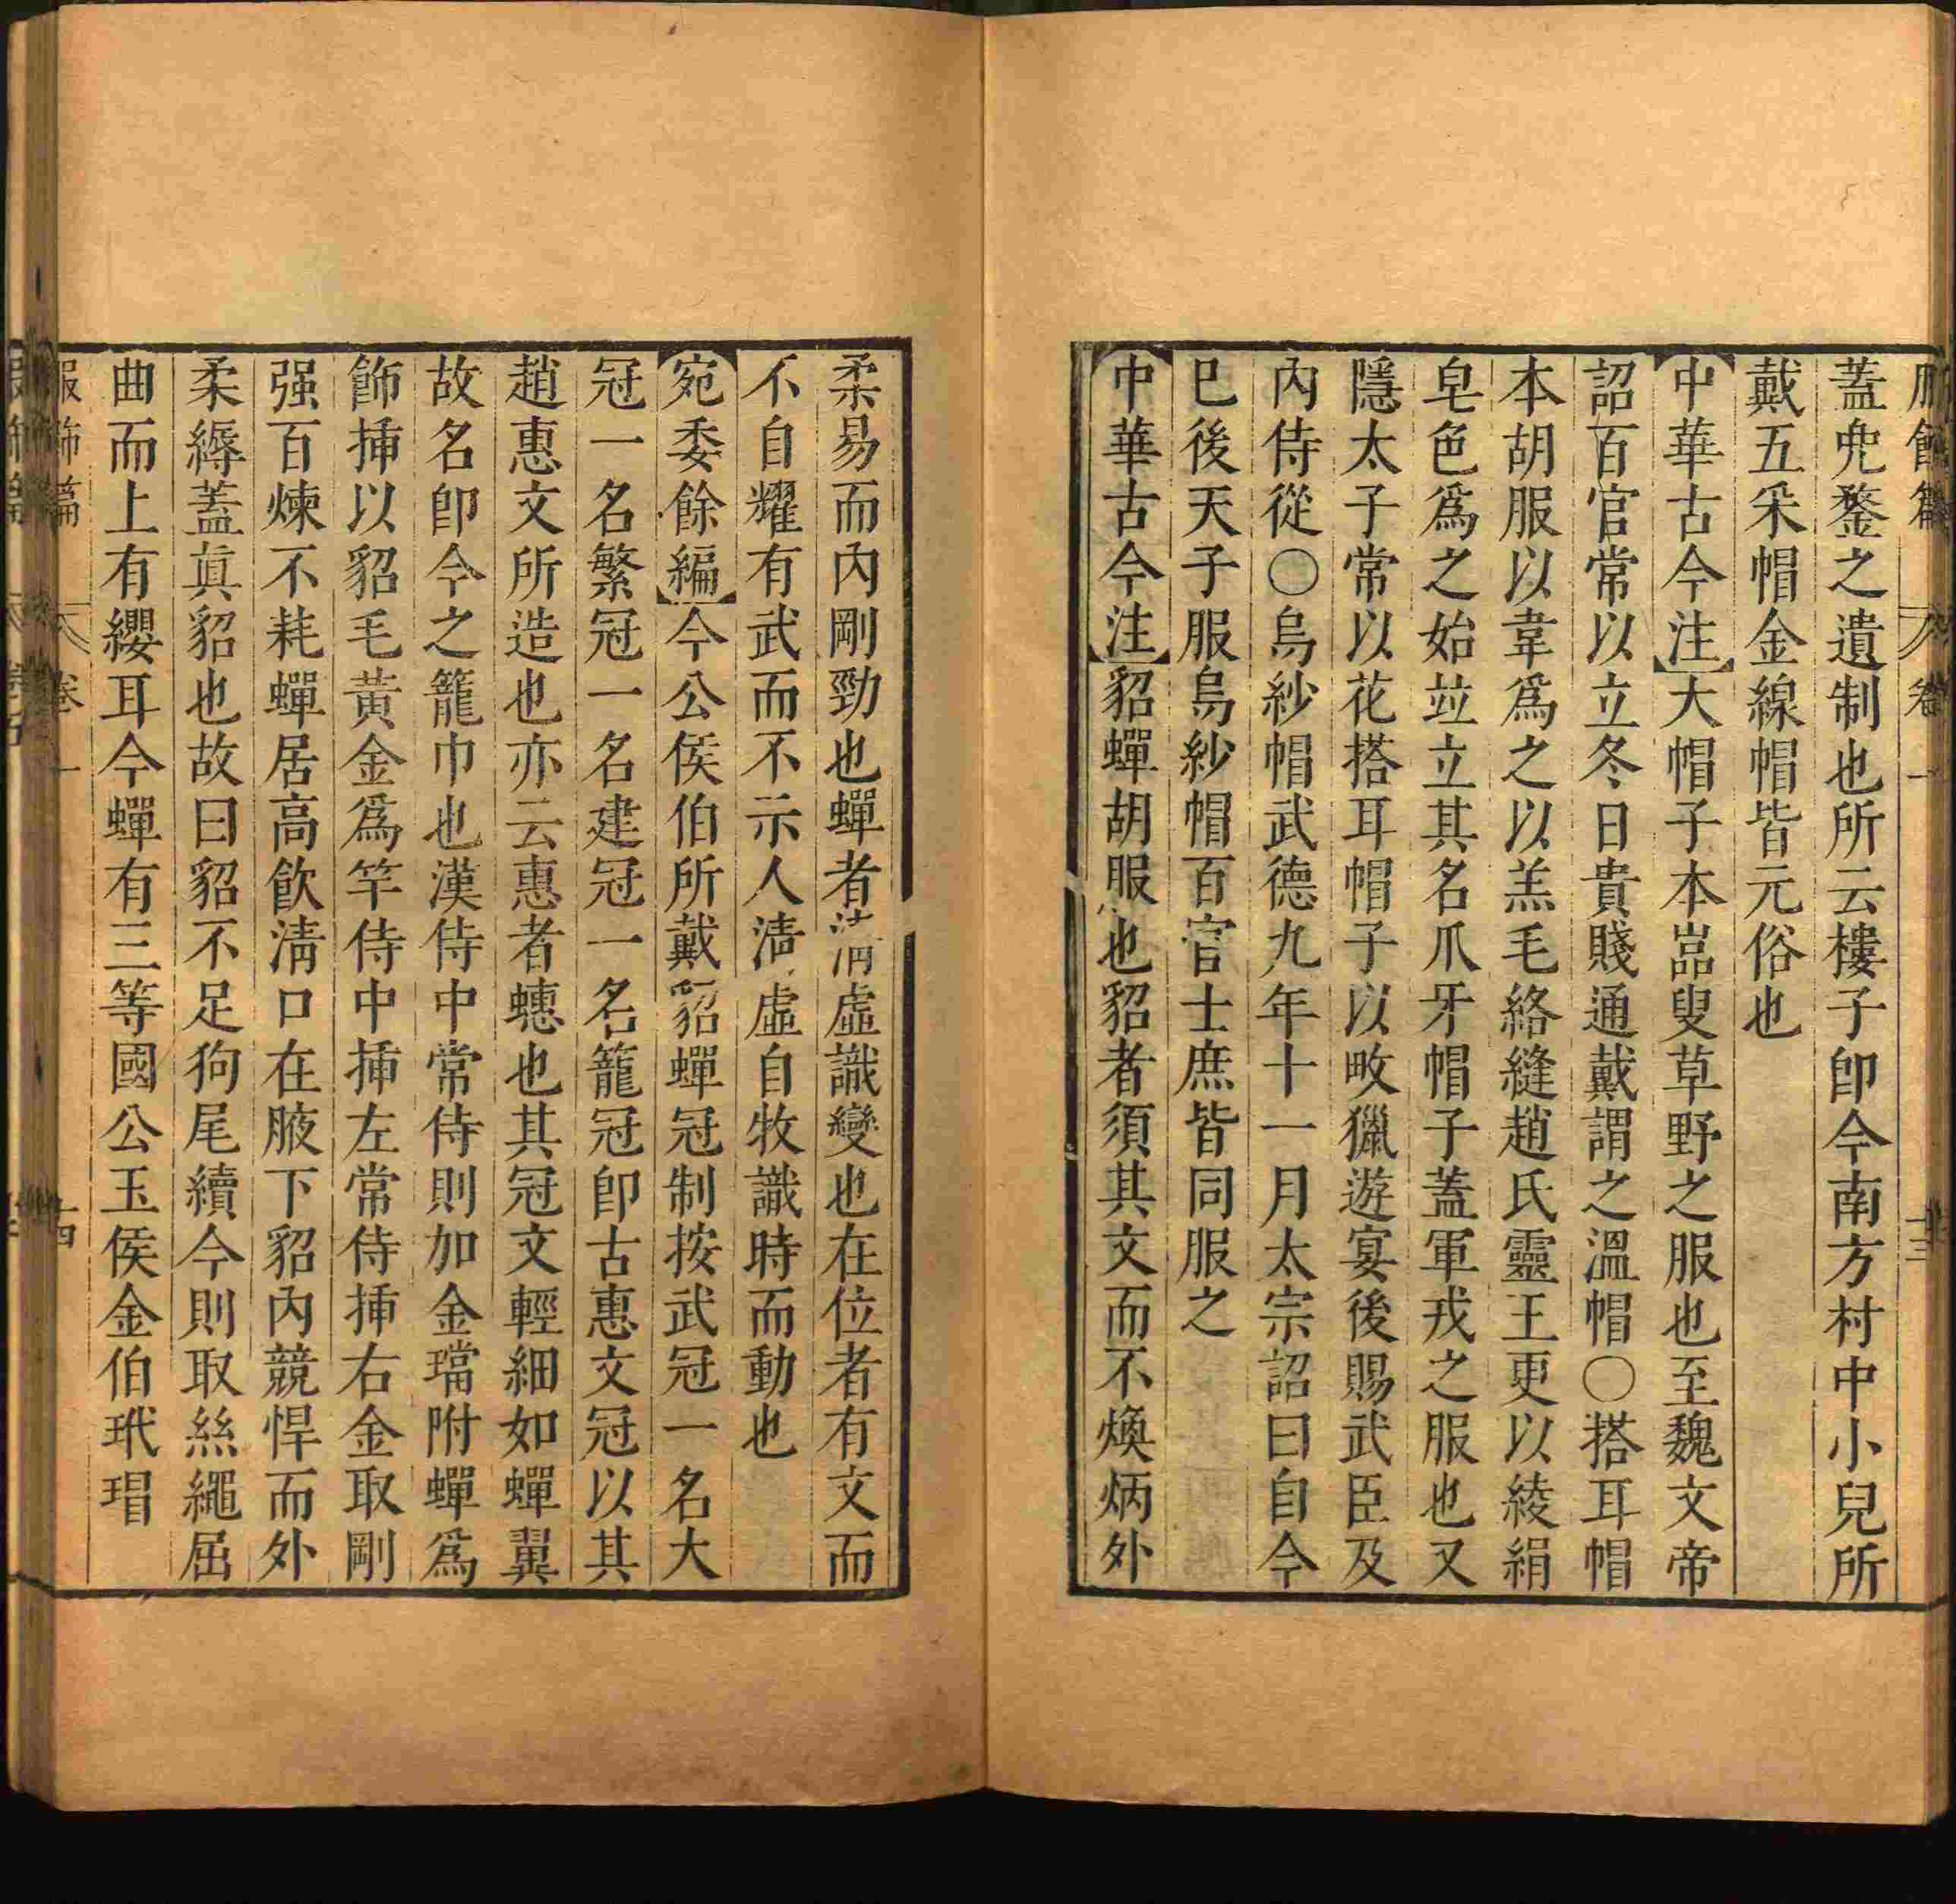 蓋兜鍪之遺制也所云樓子卽今南方村中小兒所
戴五采帽金線帽皆元俗也
【中華古今注】大帽子本嵓叟草野之服也至魏文帝
詔百官常以立冬日貴賤通戴謂之溫帽○搭耳帽
本胡服以韋爲之以羔毛絡縫趙氏靈王更以綾絹
皂色爲之始竝立其名爪牙帽子蓋軍戎之服也又
隱太子常以花搭耳帽子以畋獵遊宴後賜武臣及
內侍從○烏紗帽武德九年十一月太宗詔曰自今
巳後天子服烏紗帽百官士庶皆同服之
【中華古今注】貂蟬胡服也貂者須其文而不煥炳外
柔易而內剛勁也蟬者清虛識變也在位者有文而
不自耀有武而不示人清虛自牧識時而動也
【宛委餘編】今公侯伯所戴貂蟬冠制按武冠一名大
冠一名繁冠一名建冠一名籠冠卽古惠文冠以其
趙惠文所造也亦云惠者蟪也其冠文輕細如蟬翼
故名卽今之籠巾也漢侍中常侍則加金璫附蟬爲
飾揷以貂毛黃金爲竿侍中揷左常侍揷右金取剛
强百煉不耗蟬居高飲清口在腋下貂內競悍而外
柔縟蓋眞貂也故曰貂不足狗尾續今則取絲繩屈
曲而上有纓耳今蟬有三等國公玉侯金伯玳瑁
服飾篇 卷一 十四